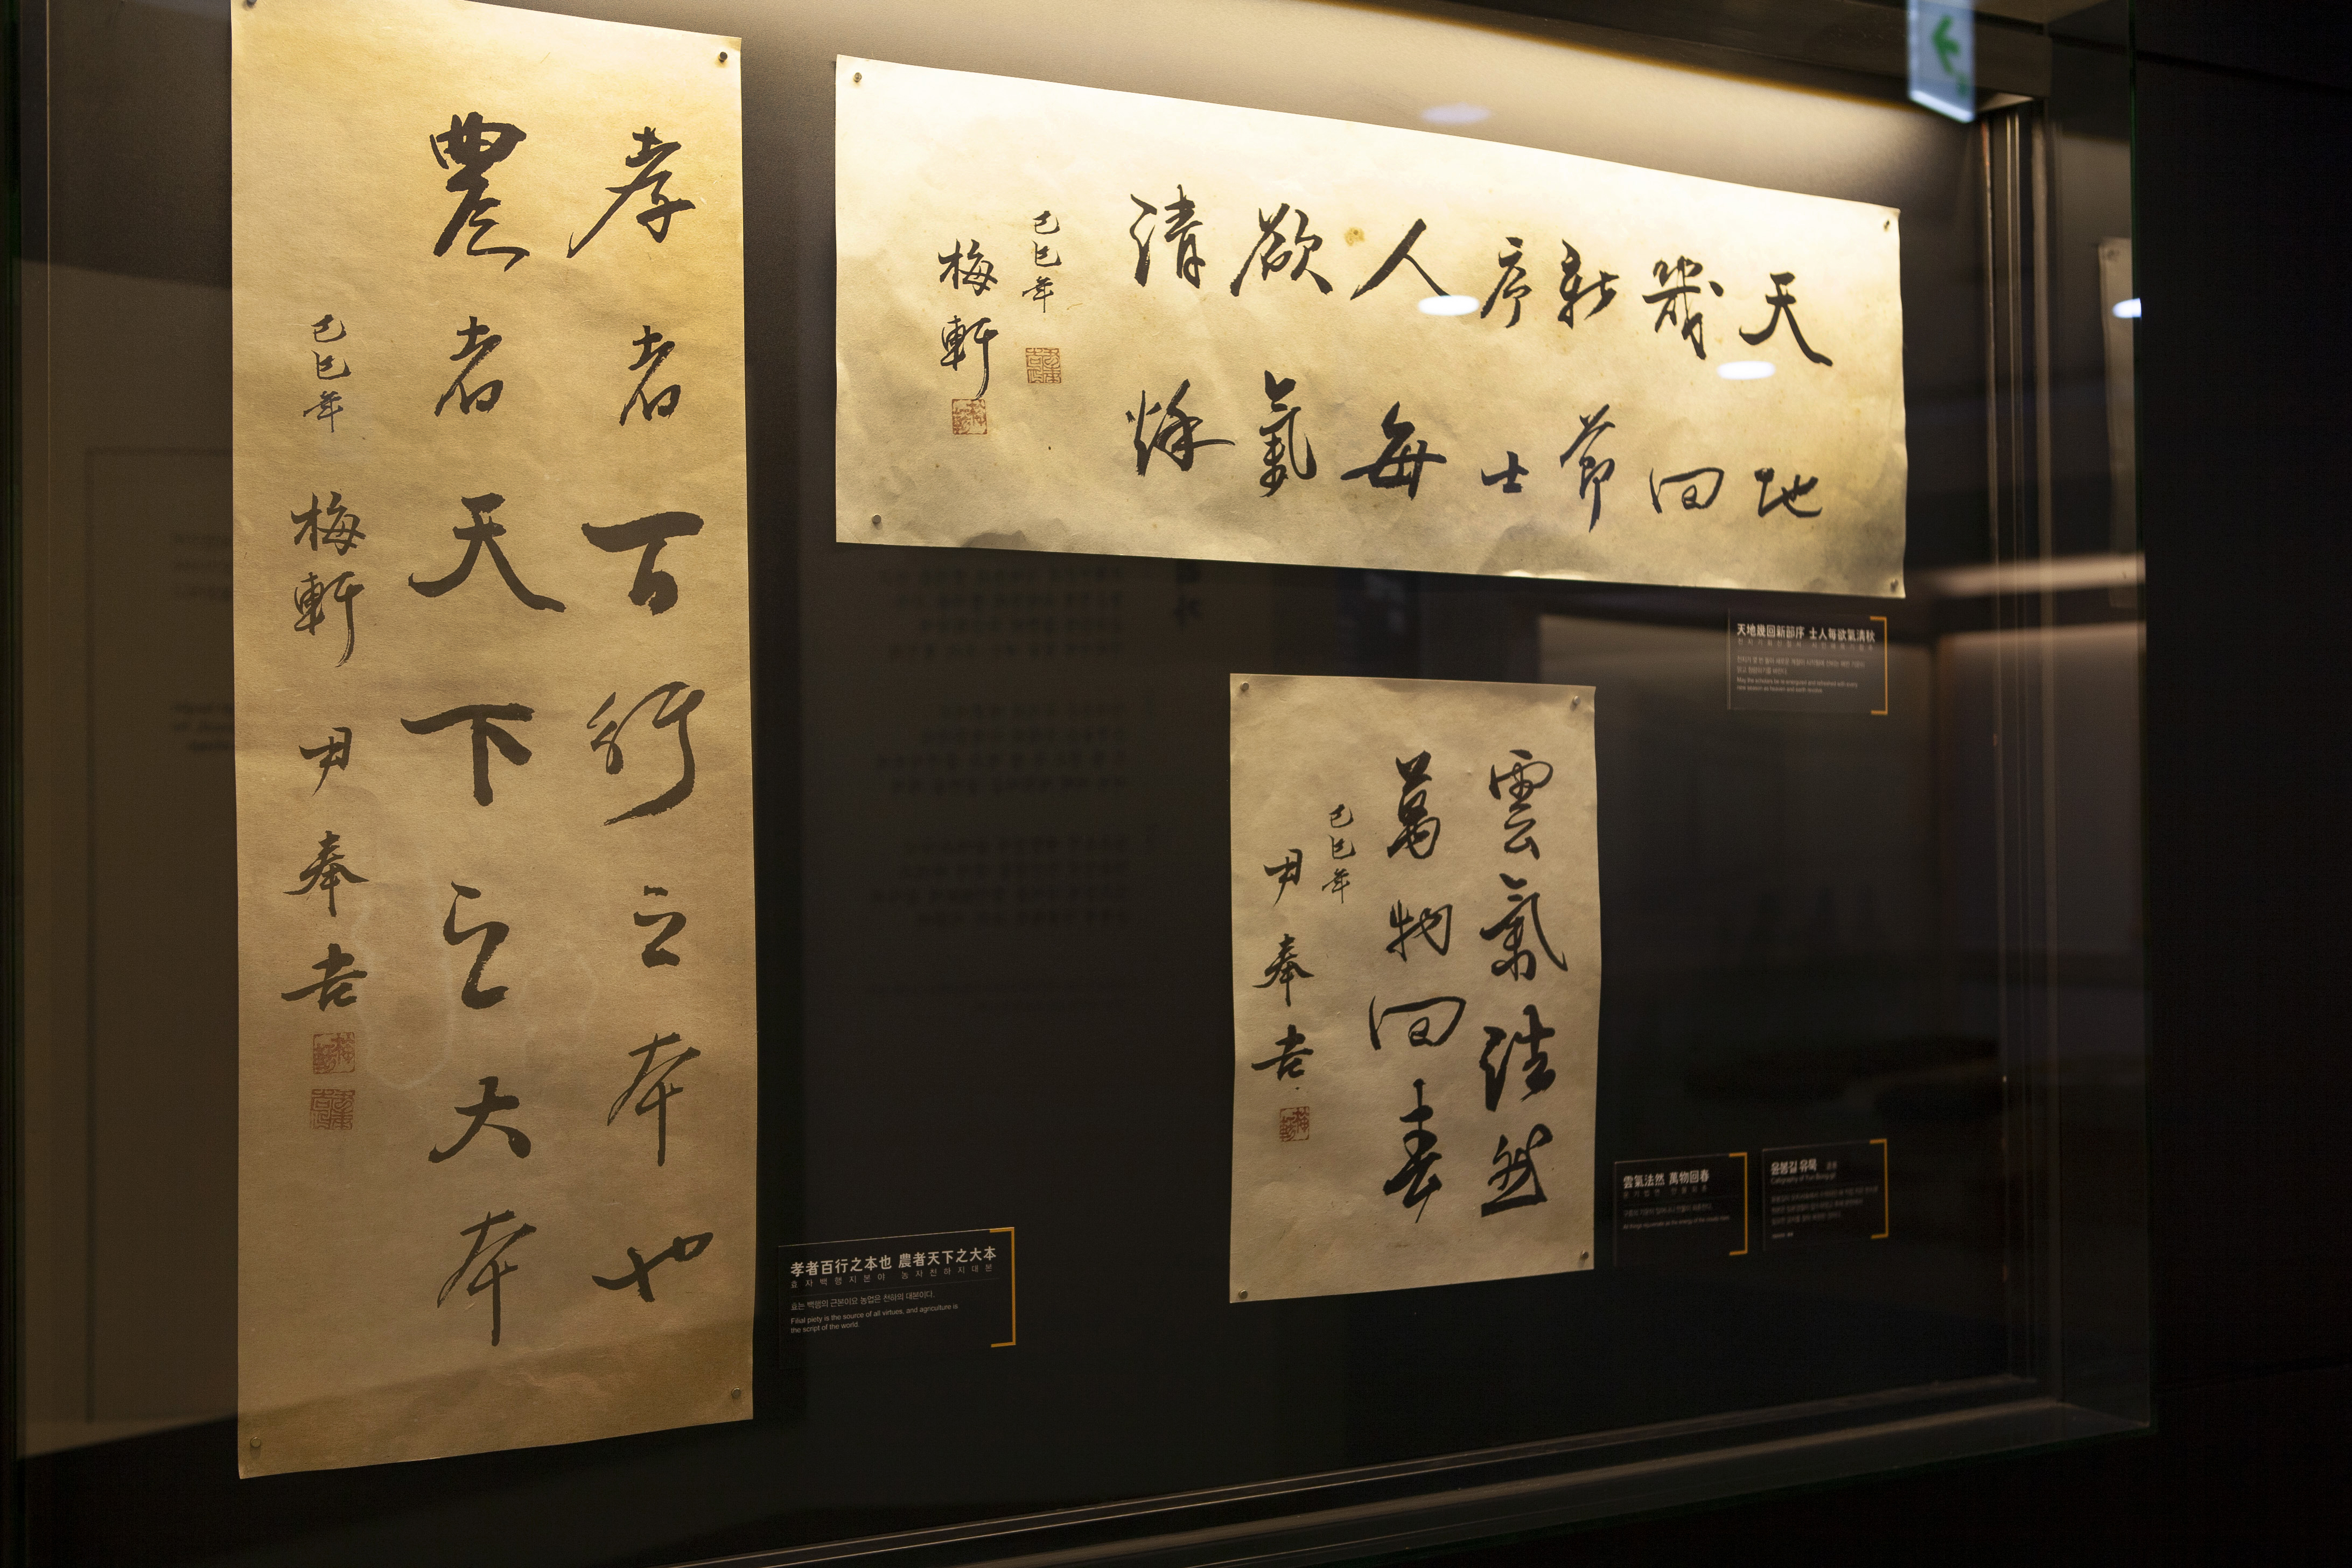 孝者百行之本也
農者天下之大本
己巳年 梅軒 尹奉吉
天地
幾回
新節
序士
人每
欲氣
清秋
己巳年
梅軒
天地幾回新節序 士人每欲氣清秋
May the scholars be re-energized and refreshed with every
new season as heaven and earth revolve.
雲氣法然
萬物回春
己巳年
尹奉吉
孝者百行之本也 農者天下之大本
효자백행지본야 농자천하지대본
효는 백행의 근본이요 농업은 천하의 대본이다.
Filial piety is the source of all virtues, and agriculture is
the script of the world.
雲氣法然 萬物回春
운기법연 만물회춘
윤봉길 유묵
Calligraphy of Yun Bong-gil